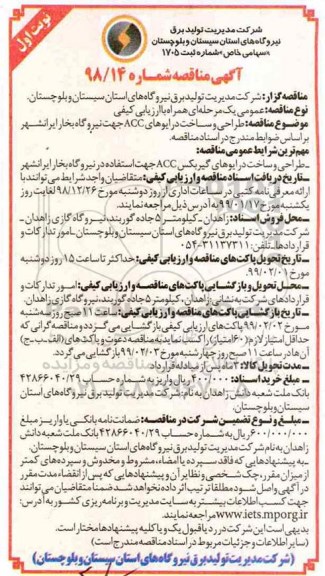 نوبت اول
شرکت مدیریت تولید برق
نیروگاه‌های استان سیستان و بلوچستان
«سهامی خاص» شماره ثبت ۱۷۰۵
آگهی مناقصه شماره ۹۸/۱۴
مناقصه گزار: شرکت مدیریت تولید برق نیروگاه‌های استان سیستان و بلوچستان.
نوع مناقصه: عمومی یک مرحله‌ای همراه با ارزیابی کیفی
موضوع مناقصه: طراحی و ساخت درایوهای ACC جهت نیروگاه بخار ایرانشهر
بر اساس ضوابط مندرج در اسناد مناقصه.
مهم‌ترین شرایط عمومی مناقصه:
ـ طراحی و ساخت درایو های گیربکس ACC جهت استفاده در نیروگاه بخار ایرانشهر
ـ تاریخ دریافت اسناد مناقصه و ارزیابی کیفی: متقاضیان واجد شرایط می توانند با
ارائه معرفی نامه کتبی در ساعات اداری از روز دوشنبه مورخ ۹۸/۱۲/۲۶ لغایت روز
یکشنبه مورخ ۹۹/۰۱/۱۷ به آدرس ذیل مراجعه نمایند.
ـ محل فروش اسناد: زاهدان ـ کیلومتر ۵ جاده گوربند، نیروگاه گازی زاهدان ـ
شرکت مدیریت تولید برق نیروگاه‌های استان سیستان و بلوچستان ـ امور تدارکات و
قراردادها ـ تلفن: ۳۱۱۳۷۳۱۱-۰۵۴
ـ تاریخ تحویل پاکت‌های مناقصه و ارزیابی کیفی: حداکثر تا ساعت ۱۵ روز دوشنبه
مورخ ۹۹/۰۲/۰۱.
ـ محل تحویل و بازگشایی پاکت‌های مناقصه و ارزیابی کیفی: امور تدارکات و
قراردادهای شرکت به نشانی زاهدان، کیلومتر ۵ جاده گوربند، نیروگاه گازی زاهدان.
ـ تاریخ بازگشایی پاکت‌های مناقصه و ارزیابی کیفی: ساعت ۱۱ صبح روز سه شنبه
مورخ ۹۹/۰۲/۰۲ پاکت‌های ارزیابی کیفی بازگشایی می گردد و مناقصه گرانی که
حداقل امتیاز لازم (۶۰ امتیاز) را کسب نمایند به مناقصه دعوت و پاکت‌های (الف-ب-ج)
آن ها در ساعت ۱۱ صبح روز چهارشنبه مورخ ۹۹/۰۲/۰۳ بازگشایی می گردد.
ـ مدت تحویل کالا: ماه شمسی از مبادله قرارداد
ـ مبلغ خرید اسناد: ۴۰۰/۰۰۰ ریال واریز به شماره حساب ۴۲۸۶۶۰۴۰/۲۹
بانک ملت شعبه دانش زاهدان به نام: شرکت مدیریت تولید برق نیروگاه‌های استان
سیستان و بلوچستان.
ـ مبلغ و نوع تضمین شرکت در مناقصه: ضمانت نامه بانکی یا واریز مبلغ
۶۰۰/۰۰۰/۰۰۰ ریال به شماره حساب ۴۲۸۶۶۰۴۰/۲۹ بانک ملت شعبه دانش
زاهدان به نام شرکت مدیریت تولید برق نیروگاه‌های استان سیستان و بلوچستان.
ـ به پیشنهادهایی که فاقد سپرده یا امضاء، مشروط و مخدوش و سپرده های کمتر
از میزان مقرر، چک شخصی و نظایر آن و پیشنهادهایی که پس از انقضاء مدت مقرر
در آگهی واصل شود مطلقا ترتیب اثر داده نخواهد شد. ضمنا متقاضیان می توانند
جهت کسب اطلاعات بیشتر به سایت مدیریت و برنامه ریزی کشور به آدرس:
www.iets.mporg.ir مراجعه نمایند.
بدیهی است این شرکت در رد یا قبول یک و یا کلیه پیشنهادها مختار است.
(سایر اطلاعات و جزئیات مربوط در اسناد مناقصه مندرج است)
(شرکت مدیریت تولید برق نیروگاه های استان سیستان و بلوچستان)